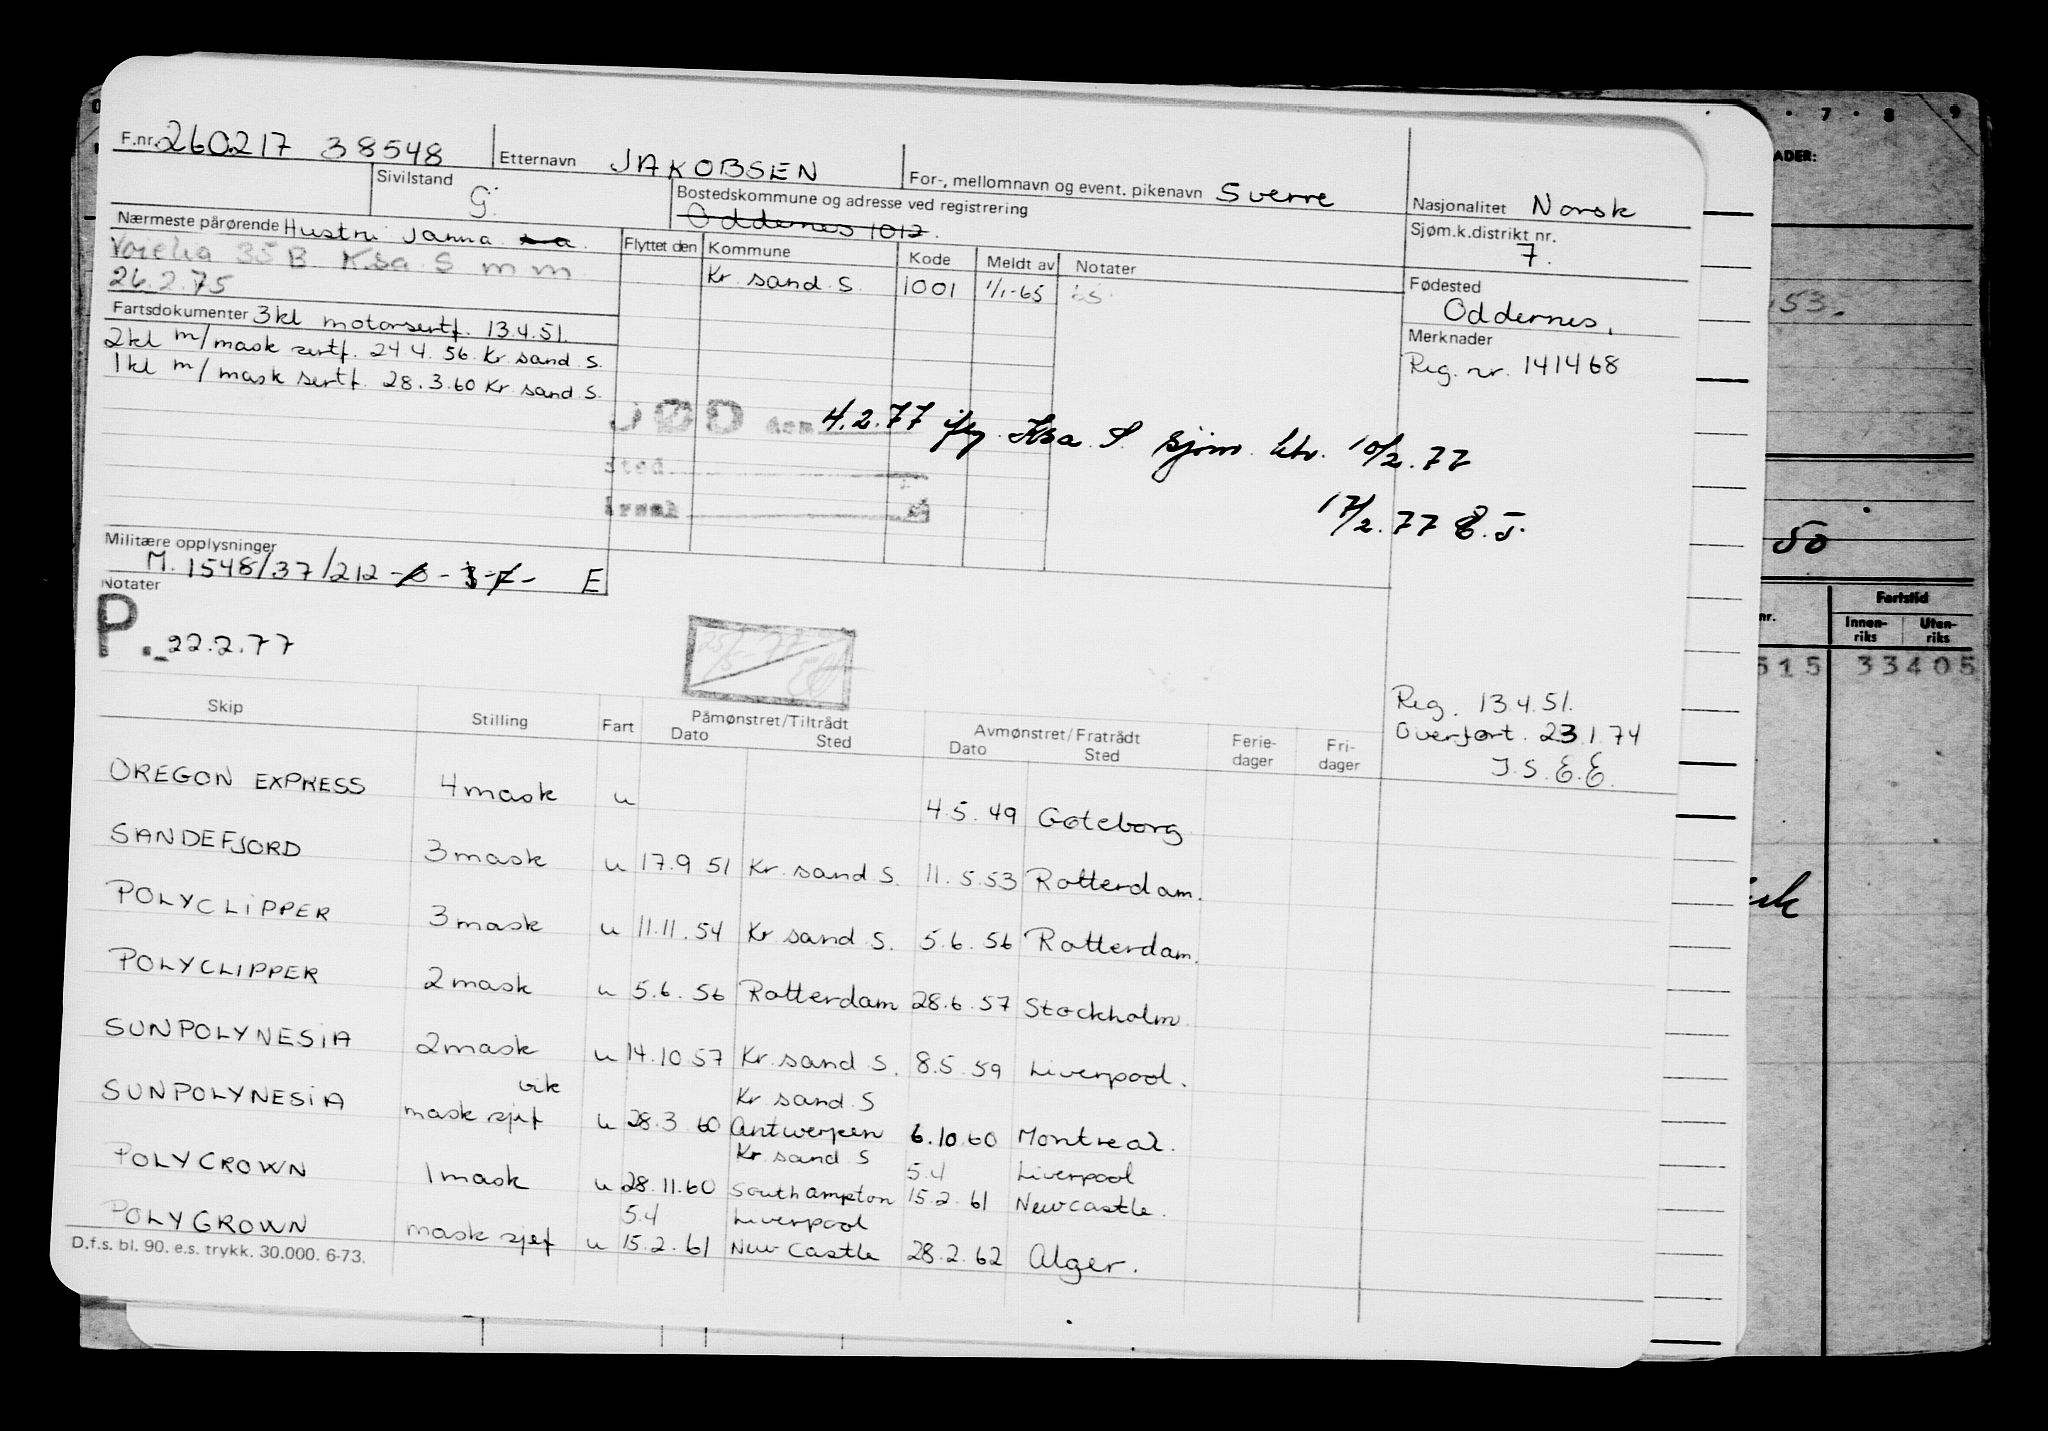 F.nr. 260217 38548 Etternavn JAKOBSEN For-, mellomnavn og event. pikenavn Sverre Nasjonalitet Norsk
Sivilstand G. Bostedskommune og adresse ved registrering Oddernes 1012. Sjøm.k.distrikt nr. 7.
Nærmeste pårørende Hustru Janna
35 B Ksa. S m m
26.2.75
Flyttet den Kommune Kode Meldt av Notater
Kr. sand. S. 1001 1/1-65
Fødested
Oddernes.
Merknader
Reg. nr. 141468
Fartsdokumenter 3kl motorsertf. 13.4.51.
2kl m/mask sertf. 24.4.56. Kr. sand. S.
1kl m/mask sertf. 28.3.60 Kr. sand. S.
DØD den 4.2.77 iflg. Ksa. S. sjøm. ktr. 10/2.77
sted
årsak
17/2.77
Militære opplysninger
M. 1548/37/212 E
Notater
P. 22.2.77
Reg. 13.4.51.
Overført. 23.1.74
J.S. E.E.
Skip Stilling Fart Påmønstret/Tiltrådt Dato Sted Avmønstret/Fratrådt Dato Sted Ferie-dager Fri-dager
OREGON EXPRESS 4 mask u 4.5.49 Gøteborg
SANDEFJORD 3 mask u 17.9 51 Kr. sand S. 11.5.53 Rotterdam.
POLYCLIPPER 3 mask u 11.11.54 Kr sand S. 5.6.56 Rotterdam.
POLYCLIPPER 2 mask u 5.6.56 Rotterdam 28.6.57 Stockholm
SUNPOLYNESIA 2 mask u 14.10 57 Kr. sand S. 8.5.59 Liverpool.
vik Kr. sand. S
SUNPOLYNESIA mask sjef u 28.3 60 Antwerpen 6.10.60 Montreal.
Kr. sand S 5.4 Liverpool
POLYCROWN 1 mask u 28.11.60 Southampton 15.2.61 Newcastle.
5.4 Liverpool
POLYCROWN mask sjef u 15.2.61 New Castle 28.2.62 Alger.
D.f.s. bl. 90. e.s. trykk. 30.000. 6-73.
7 8 9
ADER:
53.
50
nr. Fartstid
Innen-riks Uten-riks
515 33405